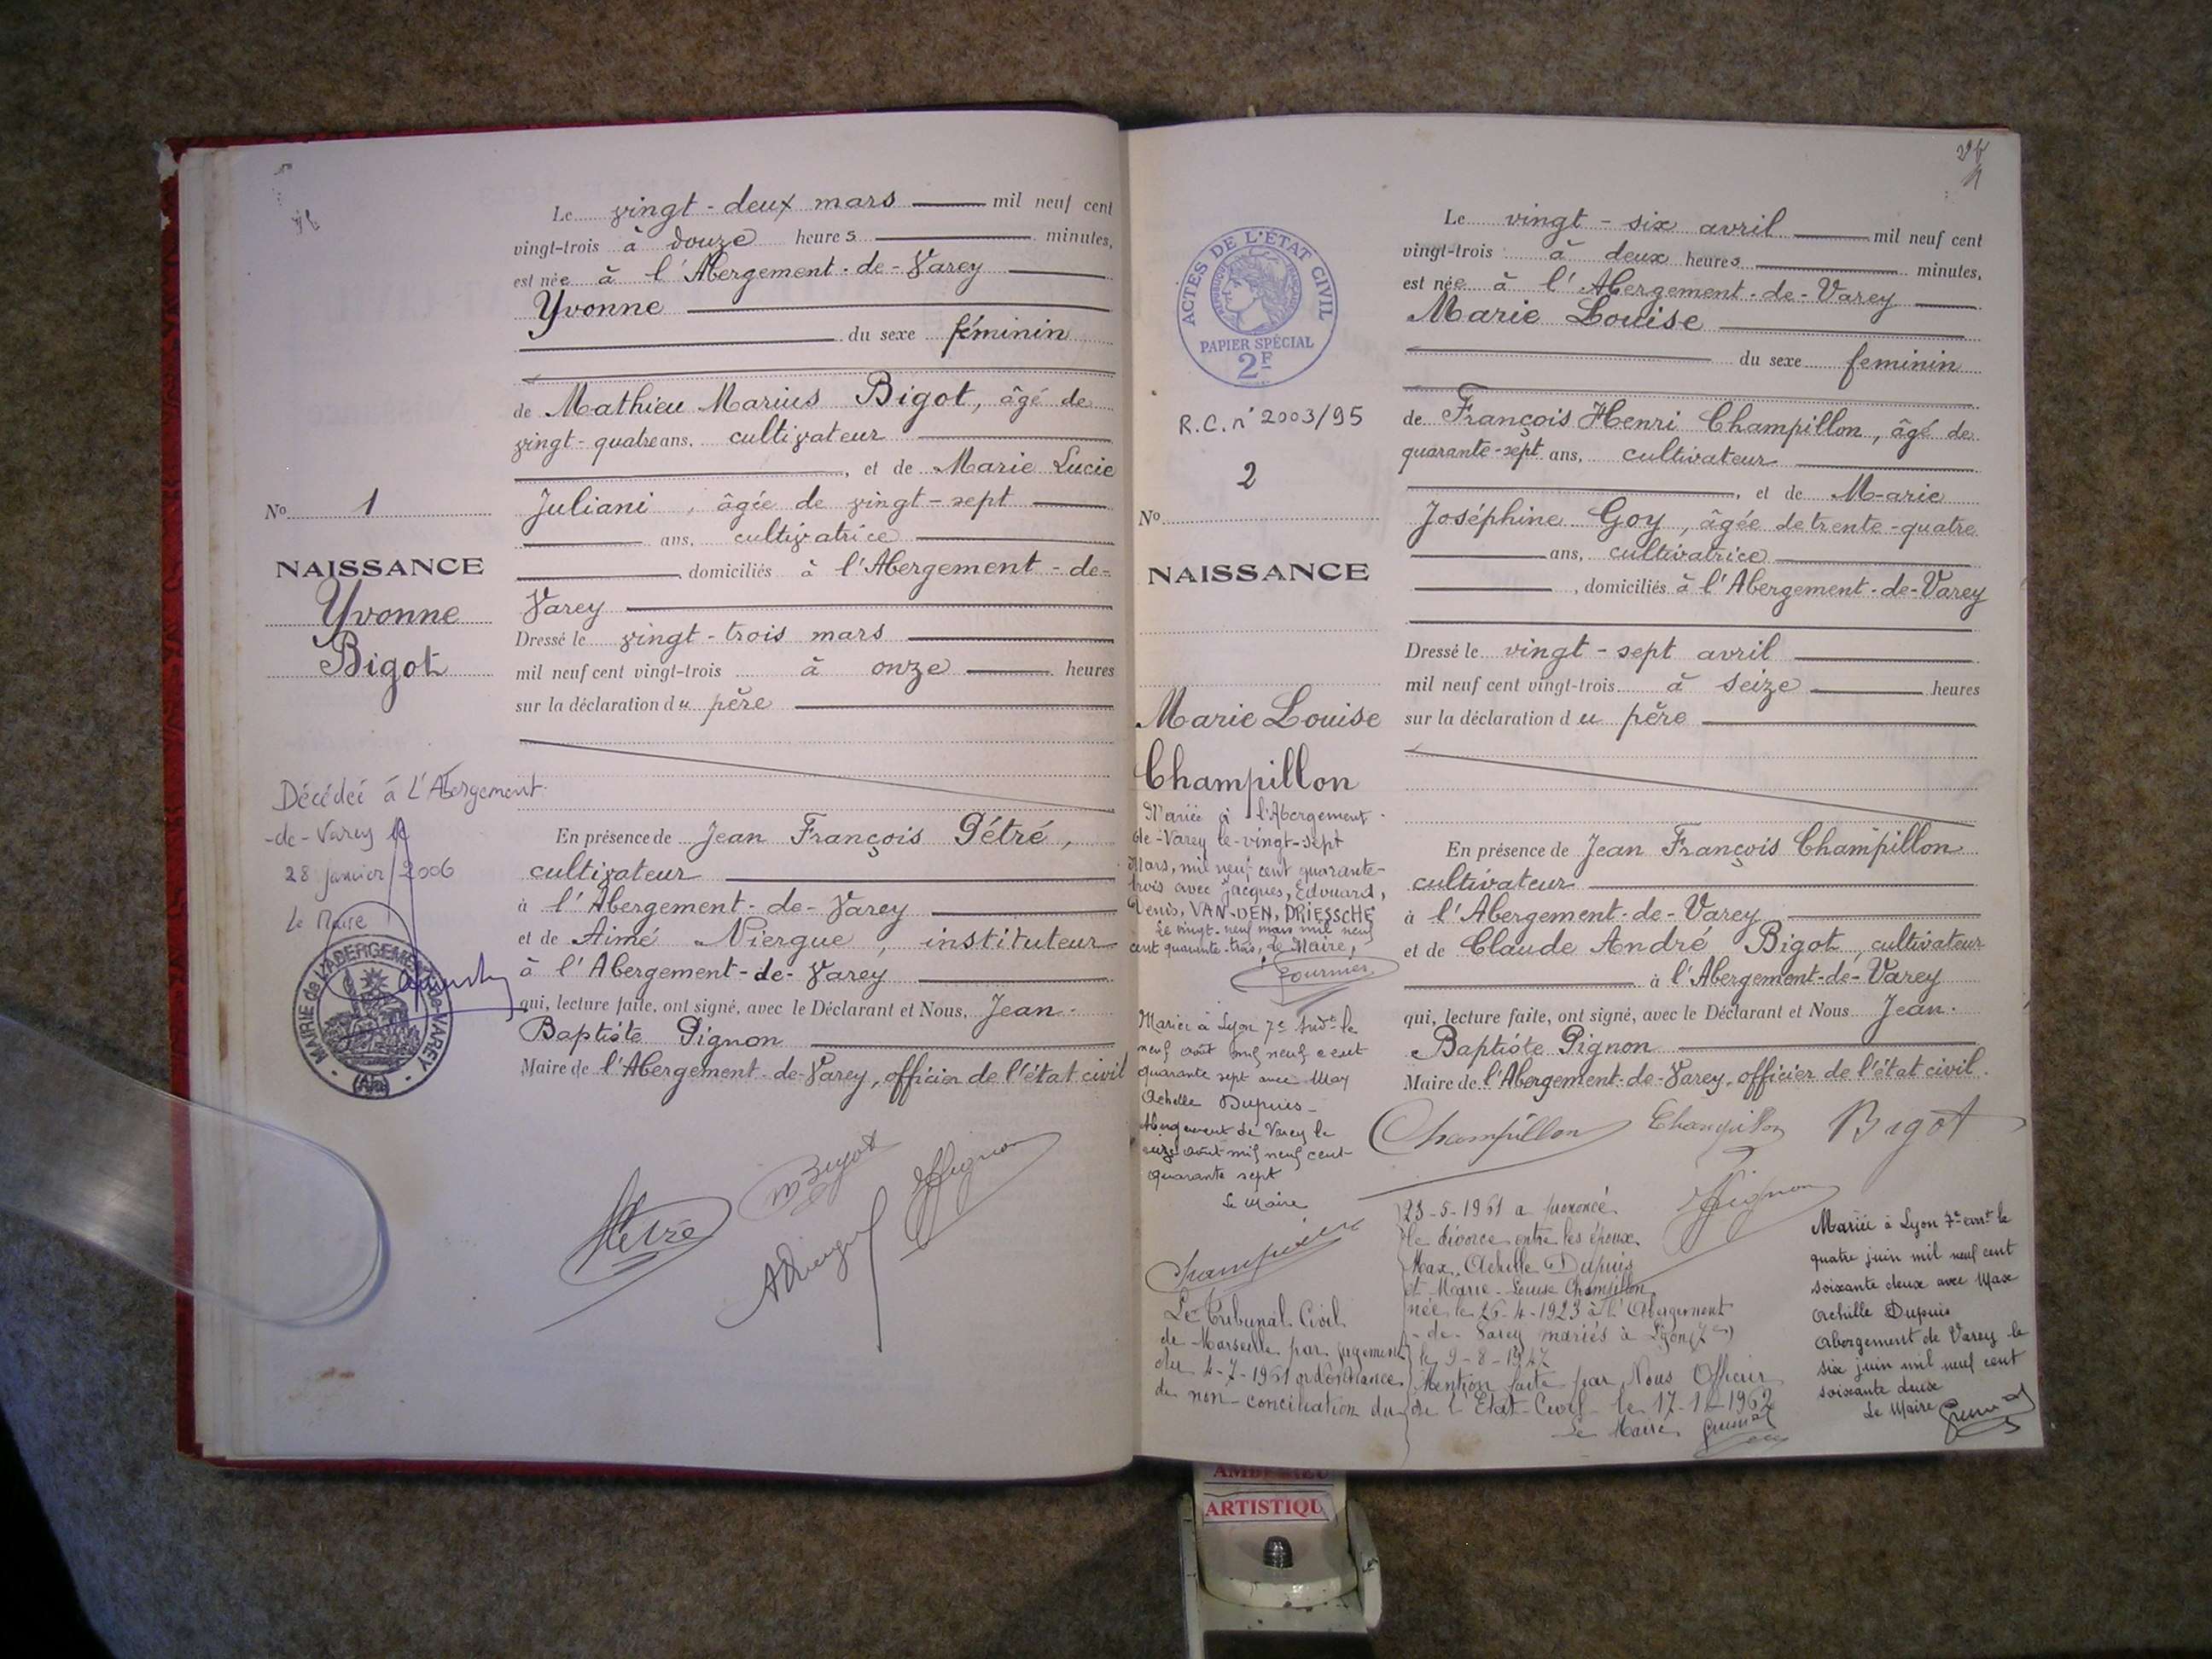 Le vingt-deux mars mil neuf cent
vingt-trois à douze heures minutes,
est née à l'Abergement-de-Varey
Yvonne
du sexe féminin
de Mathieu Marius Bigot, âgé de
vingt-quatre ans, cultivateur
, et de Marie Lucie
Juliani, âgée de vingt-sept
ans, cultivatrice
, domiciliés à l'Abergement-de-
Varey
Dressé le vingt-trois mars
mil neuf cent vingt-trois à onze heures
sur la déclaration du père
En présence de Jean François Pétré,
cultivateur
à l'Abergement-de-Varey
et de Aimé Niergue, instituteur
à l'Abergement-de-Varey
qui, lecture faite, ont signé, avec le Déclarant et Nous, Jean-
Baptiste Pignon
Maire de l'Abergement-de-Varey, officier de l'état civil
Pétré
M Bigot
Pignon
No 1
NAISSANCE
Yvonne
Bigot
Décédée à L'Abergement-
-de-Varey le
28 janvier 2006
Le Maire
MAIRIE de L'ABERGEMENT-de-VAREY
(Ain)
ACTES DE L'ÉTAT CIVIL
RÉPUBLIQUE FRANÇAISE
PAPIER SPÉCIAL
2F
R.C. n° 2003/95
2
No
NAISSANCE
Marie Louise
Champillon
Mariée à l'Abergement-
de-Varey le vingt-sept
Mars, mil neuf cent quarante-
trois avec Jacques, Edouard,
Denis, VAN-DEN, DRIESSCHE
Le vingt-neuf mars mil neuf
cent quarante-trois, le Maire,
Fournier
Mariée à Lyon 7e Arrdt le
neuf août mil neuf cent
quarante sept avec Max
Achille Dupuis-
Abergement de Varey le
onze août mil neuf cent
quarante sept
Le Maire
Le Tribunal Civil
de Marseille par jugement
du 4-7-1961 ordonnance
de non-conciliation du
23-5-1961 a prononcé
le divorce entre les époux
Max, Achille Dupuis
et Marie-Louise Champillon
née le 26-4-1923 à l'Abergement
-de-Varey mariés à Lyon (7e)
le 9-8-1947
Mention faite par Nous Officier
de l'Etat-Civil le 1962
Le Maire
Le vingt-six avril mil neuf cent
vingt-trois à deux heures minutes,
est née à l'Abergement-de-Varey
Marie Louise
du sexe feminin
de François Henri Champillon, âgé de
quarante-sept ans, cultivateur
, et de Marie
Joséphine Goy, âgée de trente-quatre
ans, cultivatrice
, domiciliés à l'Abergement-de-Varey
Dressé le vingt-sept avril
mil neuf cent vingt-trois à seize heures
sur la déclaration du père
En présence de Jean François Champillon
cultivateur
à l'Abergement-de-Varey
et de Claude André Bigot, cultivateur
à l'Abergement-de-Varey
qui, lecture faite, ont signé, avec le Déclarant et Nous Jean-
Baptiste Pignon
Maire de l'Abergement-de-Varey, officier de l'état civil.
Champillon
Champillon
Bigot
Pignon
Mariée à Lyon 7e arrt le
quatre juin mil neuf cent
soixante deux avec Max
Achille Dupuis
Abergement de Varey le
six juin mil neuf cent
soixante deux
Le Maire
ARTISTIQU